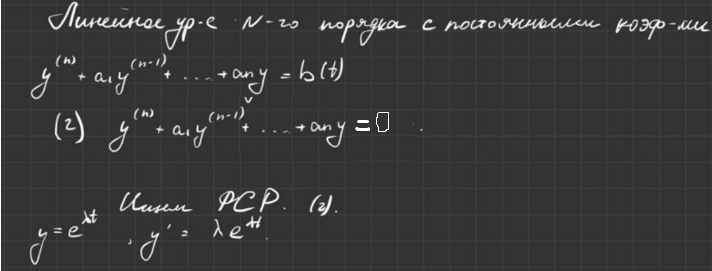 Линейное ур-е N-го порядка с постоянными коэф-ми
y^(n) + a₁y^(n-1) + .... + aₙy = b(t)
(2) y^(n) + a₁y^(n-1) + .... + aₙy = 0 .
Ищем ФСР. (2).
y = e^λt , y' = λe^λt.